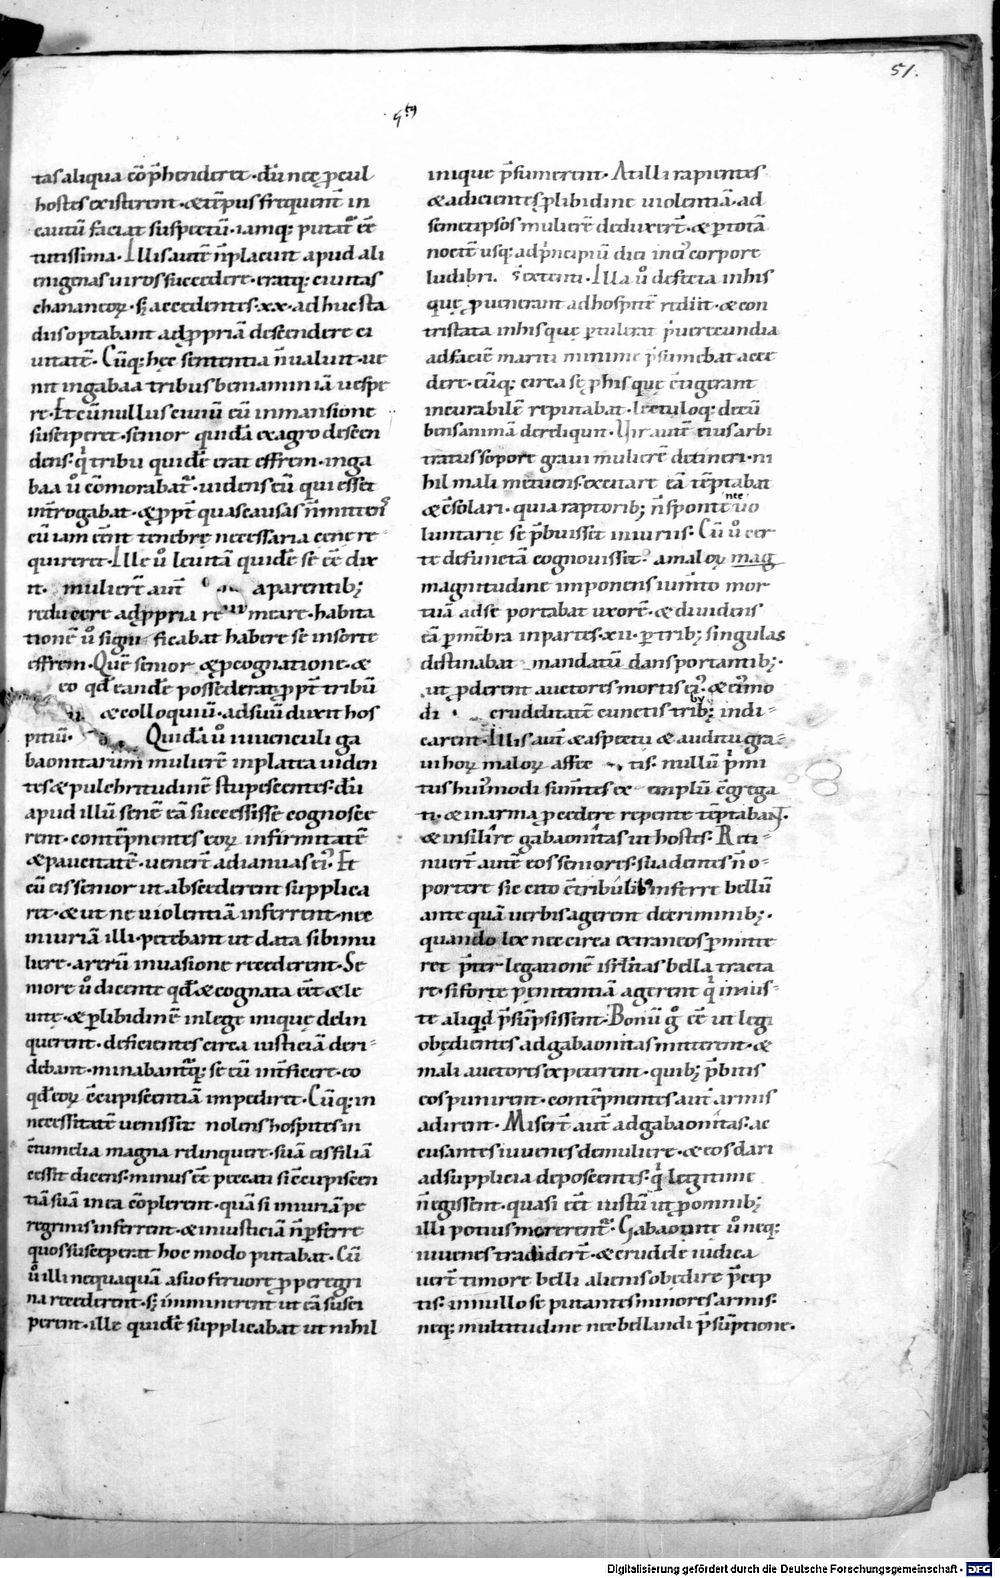 51.
5tꝰ
tas aliqua cōp̄henderet · dū nec ꝓcul
hostes existerent · & tēpus frequent̄ in
cautū faciat suspectū · iamq; putat̄ eē
tutissima · Illis autē n̄ placuit apud ali
enigenas uiros succedere · eratq; ciuitas
chananeoꝝ · s; accedentes · xx · ad huc sta
diis optabant ad ꝓpriā descendere ci
uitatē · Cūq; hęc sententia n̄ ualuit · ue
nit in gabaa tribus beniamin iā uespe
re · Et cū nullus ciuiū eū in mansione
susciperet · senior quidā ex agro descen
dens · q' tribu quidē erat effrem · in ga
baa ů cōmorabat̄ · uidens eū qui esset
int̄rogabat · & ꝓpt̄ quas causas n̄
cū iam eēnt tenebrę necessaria cenę re
quireret · Ille ů leuitā quidē se eē dix
it · mulierē aut̄ a parentib;
reducere ad ꝓpria re meare · habita
tionē ů signi ficabat habere se in sorte
effrem · Quē senior & ꝓ cognatione · &
eo qđ eandē possederat ꝓpt̄ tribū
& colloquiū · ad suū duxit hos
pitiū · Quidā ů iuuenculi ga
baonitarum mulierē in platea uiden
tes & pulchritudinē stupescentes · dū
apud illū senē eā successisse cognosce
rent · contēpnentes eoꝝ infirmitatē
& paucitatē · uener̄t ad ianuas ei' · Et
cū eis senior ut abscederent supplica
ret · & ut ne uiolentiā inferrent · nec
iniuriā illi · petebant ut data sibi mu
liere · a rerū inuasione recederent · Se
niore ů dicente qđ & cognata eēt & le
uitę · & ꝑ libidinē in lege inique delin
querent · deficientes circa iusticiā deri
debant · minabant̄q; se eū int̄ficere · eo
qđ eoꝝ c̄cupiscentiā impediret · Cūq; in
necessitatē uenisset nolens hospites in
c̄tumelia magna relinquere · suā eis filiā
cessit dicens · minus eē peccati si c̄cupiscen
tiā suā in ea cōplerent · quā si iniuriā pe
regrinis inferrent · & iniusticiā n̄ p̄ferre
quos susceperat hoc modo putabat · Cū
ů illi nequaquā a suo feruore ꝓ peregri
na recederent · s; imminerent ut eā susci
perent · ille quidē supplicabat ut nihil
inique p̄sumerent · At illi rapientes
& adicientes ꝑ libidine uiolentiā · ad
semetipsos mulierē deduxer̄t · & ꝑ totā
noctē usq; ad p'ncipiū diei in ei' corpore
ludibri. s̄ extenti · Illa ů defecta in his
quę ꝓuenerant ad hospitē rediit · & con
tristata in his quę ꝑtulerat p' uerecundia
ad faciē mariti minime p̄sumebat acce
dere · cūq; circa se ꝓ his quę c̄tigerant
incurabilē reputabat · lectuloq; decū
bens animā dereliquit · Uir autē eius arbi
tratus sopore graui mulierē detineri · ni
hil mali metuens · excitare eā tēptabat
& c̄solari · quia raptorib; n̄ sponte nec uo
luntarię se p̄buisset iniuriis · Cū ů cer
te defunctā cognouisset · a maloꝝ mag
magnitudine imponens iumto mor
tuā ad se portabat uxorē · & diuidens
eā ꝑ mēbra in partes · xii · ꝑ trib; singulas
destinabat mandatū dans portantib; ·
ut ꝓderent auctores mortis ei' · &
di crudelitatē cunctis trib; by indi
carent · Illis aut̄ & aspectu & auditu gra
ui hoꝝ maloꝝ affec tis · nullū p'mi
tus hui'modi sumtes ex emplū c̄grega
ti · & in arma ꝓcedere repente tēptabant
& insilire gabaonitas ut hostes · Reti
nuer̄t autē eos seniores suadentes n̄ o
portere sic cito c̄tribulib' inferre bellū
ante quā uerbis agerent de criminib; ·
quando lex nec circa extraneos ꝑmitte
ret p̄ter legationē isrlitas bella tracta
re · si forte penitentiā agerent q' inius
te aliqđ p̄sūpsissent · Bonū g̊ eē ut legi
obędientes ad gabaonitas mitterent · &
mali auctores expeterent · quib; p̄bitis
eos punirent · contēpnentes aut̄ armis
adirent · Miser̄t aut̄ ad gabaonitas · ac
cusantes iuuenes de muliere · & eos dari
ad supplicia deposcentes · q' legitime
n̄ egissent · quasi eēt iustū ut ꝓ omnib;
illi potius morerent̄ · Gabaonitę ů neq;
iuuenes tradider̄t · & crudele iudica
uer̄t timore belli alienis obędire p̄cep
tis · in nullo se putantes minores armis ·
neq; multitudine nec bellandi p̄sūptione.
Digitalisierung gefördert durch die Deutsche Forschungsgemeinschaft - DFG